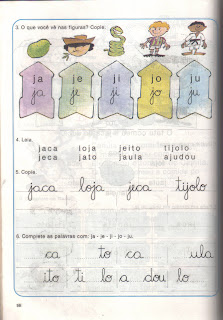 3. O que você vê nas figuras? Copie.
ja je ji jo ju
ja je ji jo ju
4. Leia.
jaca loja jeito tijolo
jeca jato jaula ajudou
5. Copie.
jaca loja jeca tijolo
6. Complete as palavras com: ja - je - ji - jo - ju.
ca to ca ula
ito ti lo a dou lo